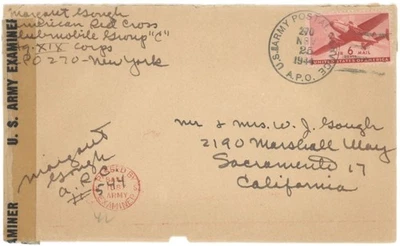 Margaret Gough
American Red Cross
Clubmobile Group "C"
Hq. XIX Corps
APO 270 - New York
U.S. ARMY POSTAL SERVICE
A.P.O.
270
25
1944
AIR 6¢ MAIL
UNITED STATES OF AMERICA
U. S. ARMY EXAMINER
AMINER
Mr & Mrs. W. J. Gough
2190 Marshall Way
Sacramento 17
California
Margaret
Gough
A.R.C.
PASSED BY
544
ARMY
EXAMINER